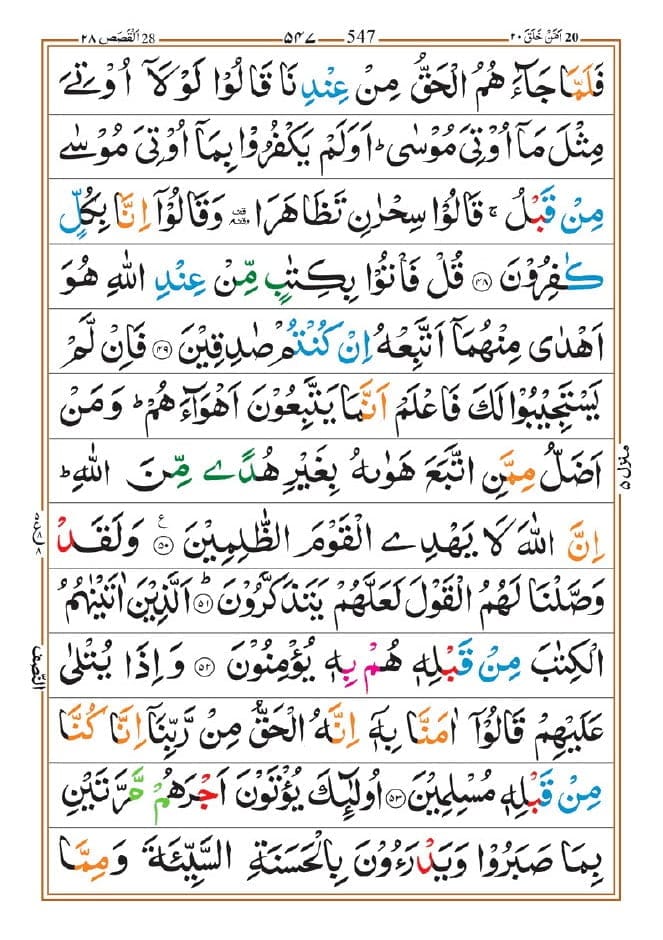 28 اَلْقَصَص ٢٨
547 ۵۴۷
20 اَمَّنْ خَلَقَ ٢٠
فَلَمَّا جَآءَ هُمُ الْحَقُّ مِنْ عِنْدِ نَا قَالُوْا لَوْ لَاۤ اُوْتِیَ
مِثْلَ مَاۤ اُوْتِیَ مُوْسٰی ؕ اَوَلَمْ یَكْفُرُوْا بِمَاۤ اُوْتِیَ مُوْسٰی
مِنْ قَبْلُ ۚ قَالُوْا سِحْرٰنِ تَظَاهَرَا ۥ وَقَالُوْۤا اِنَّا بِكُلٍّ
كٰفِرُوْنَ ﴿۴۸﴾ قُلْ فَاْتُوْا بِكِتٰبٍ مِّنْ عِنْدِ اللّٰهِ هُوَ
اَهْدٰی مِنْهُمَاۤ اَتَّبِعْهُ اِنْ كُنْتُمْ صٰدِقِیْنَ ﴿۴۹﴾ فَاِنْ لَّمْ
یَسْتَجِیْبُوْا لَكَ فَاعْلَمْ اَنَّمَا یَتَّبِعُوْنَ اَهْوَآءَ هُمْ ؕ وَمَنْ
اَضَلُّ مِمَّنِ اتَّبَعَ هَوٰىهُ بِغَیْرِ هُدًی مِّنَ اللّٰهِ ؕ
اِنَّ اللّٰهَ لَا یَهْدِی الْقَوْمَ الظّٰلِمِیْنَ ﴿۵۰﴾ ع وَلَقَدْ
وَصَّلْنَا لَهُمُ الْقَوْلَ لَعَلَّهُمْ یَتَذَكَّرُوْنَ ﴿۵۱﴾ ؕ اَلَّذِیْنَ اٰتَیْنٰهُمُ
الْكِتٰبَ مِنْ قَبْلِهٖ هُمْ بِهٖ یُؤْمِنُوْنَ ﴿۵۲﴾ وَاِذَا یُتْلٰی
عَلَیْهِمْ قَالُوْۤا اٰمَنَّا بِهٖۤ اِنَّهُ الْحَقُّ مِنْ رَّبِّنَاۤ اِنَّا كُنَّا
مِنْ قَبْلِهٖ مُسْلِمِیْنَ ﴿۵۳﴾ اُولٰٓئِكَ یُؤْتَوْنَ اَجْرَهُمْ مَّرَّتَیْنِ
بِمَا صَبَرُوْا وَیَدْرَءُوْنَ بِالْحَسَنَةِ السَّیِّئَةَ وَمِمَّا
منزل ۵
النّصف